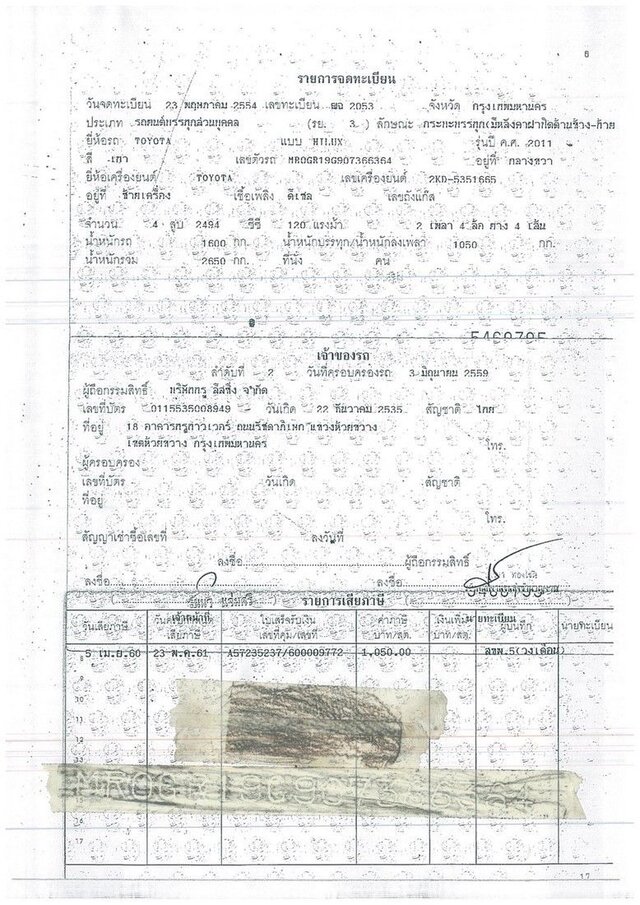 6
รายการจดทะเบียน
วันจดทะเบียน 23 พฤษภาคม 2554 เลขทะเบียน ฒฉ 2053 จังหวัด กรุงเทพมหานคร
ประเภท รถยนต์บรรทุกส่วนบุคคล (รย. 3 ) ลักษณะ กระบะบรรทุก(มีหลังคาฝาปิดด้านข้าง-ท้าย
ยี่ห้อรถ TOYOTA แบบ HILUX รุ่นปี ค.ศ. 2011
สี เทา เลขตัวรถ MR0GR19G907366364 อยู่ที่ กลางขวา
ยี่ห้อเครื่องยนต์ TOYOTA เลขเครื่องยนต์ 2KD-5351665
อยู่ที่ ซ้ายเครื่อง เชื้อเพลิง ดีเซล เลขถังแก๊ส
จำนวน 4 สูบ 2494 ซีซี 120 แรงม้า 2 เพลา 4 ล้อ ยาง 4 เส้น
น้ำหนักรถ 1600 กก. น้ำหนักบรรทุก/น้ำหนักลงเพลา 1050 กก.
น้ำหนักรวม 2650 กก. ที่นั่ง คน
เจ้าของรถ
ลำดับที่ 2 วันที่ครอบครองรถ 3 มิถุนายน 2559
ผู้ถือกรรมสิทธิ์ บริษัทกรู ลีสซิ่ง จำกัด
เลขที่บัตร 0115535008949 วันเกิด 22 ธันวาคม 2535 สัญชาติ ไทย
ที่อยู่ 18 อาคารทรูทาวเวอร์ ถนนรัชดาภิเษก แขวงห้วยขวาง
เขตห้วยขวาง กรุงเทพมหานคร
โทร.
ผู้ครอบครอง
เลขที่บัตร วันเกิด สัญชาติ
ที่อยู่
โทร.
สัญญาเช่าซื้อเลขที่ ลงวันที่
ลงชื่อ ผู้ถือกรรมสิทธิ์
ลงชื่อ ลงชื่อ
รายการเสียภาษี
วันเสียภาษี เสียภาษี ใบเสร็จรับเงิน เลขที่คุม/เลขที่ ค่าภาษี บาท/สต. เงินเพิ่ม บาท/สต. ผู้บันทึก นายทะเบียน
5 เม.ย.60 23 พ.ค.61 AST235237/600009772 1,050.00 ลขพ.5(วงเดือน)
8
9
10
11
12
13
15
16
17
17